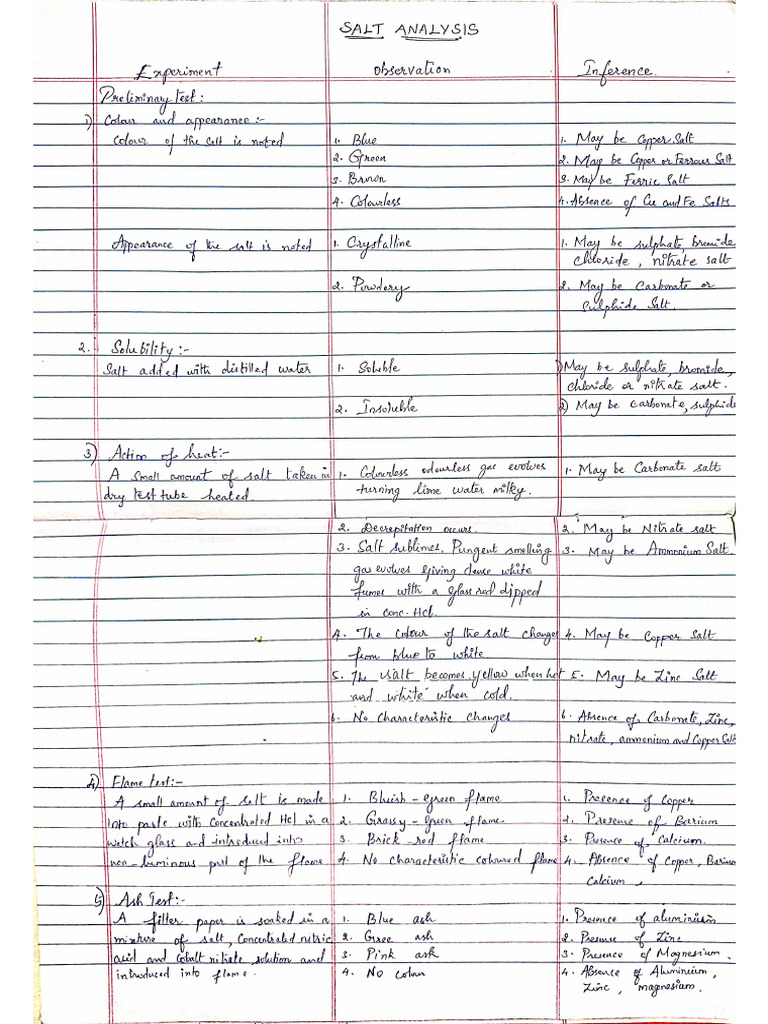 SALT ANALYSIS
Experiment Observation Inference
Preliminary Test:
1) Colour and appearance:-
Colour of the salt is noted 1. Blue 1. May be Copper Salt
2. Green 2. May be Copper or Ferrous Salt
3. Brown 3. May be Ferric Salt
4. Colourless 4. Absence of Cu and Fe Salts
Appearance of the salt is noted 1. Crystalline 1. May be sulphate, bromide
chloride, nitrate salt
2. Powdery 2. May be Carbonate or
Sulphide Salt.
2. Solubility:-
Salt added with distilled water 1. Soluble 1) May be sulphate, bromide,
chloride or nitrate salt.
2. Insoluble 2) May be Carbonate, sulphide
3) Action of heat:-
A small amount of salt taken in 1. Colourless odourless gas evolves 1. May be Carbonate salt
dry test tube heated. turning lime water milky.
2. Decrepitation occurs. 2. May be Nitrate salt
3. Salt sublimes. Pungent smelling 3. May be Ammonium Salt.
gas evolves giving dense white
fumes with a glass rod dipped
in conc. Hcl.
4. The colour of the salt changes 4. May be Copper Salt
from blue to white
5. The salt becomes yellow when hot 5. May be Zinc Salt
and white when cold.
6. No characteristic changes 6. Absence of Carbonate, Zinc,
nitrate, ammonium and Copper Salt
4) Flame test:-
A small amount of salt is made 1. Bluish-green flame 1. Presence of Copper
into paste with concentrated Hcl in a 2. Grassy-green flame 2. Presence of Barium
watch glass and introduced into 3. Brick-red flame 3. Presence of Calcium.
non-luminous part of the flame 4. No characteristic coloured flame 4. Absence of Copper, Barium
Calcium.
5) Ash Test:-
A filter paper is soaked in a 1. Blue ash 1. Presence of aluminium
mixture of salt, Concentrated nitric 2. Gree ash 2. Presence of Zinc
acid and cobalt nitrate solution and 3. Pink ash 3. Presence of Magnesium.
introduced into flame. 4. No colour 4. Absence of Aluminium,
Zinc, magnesium.